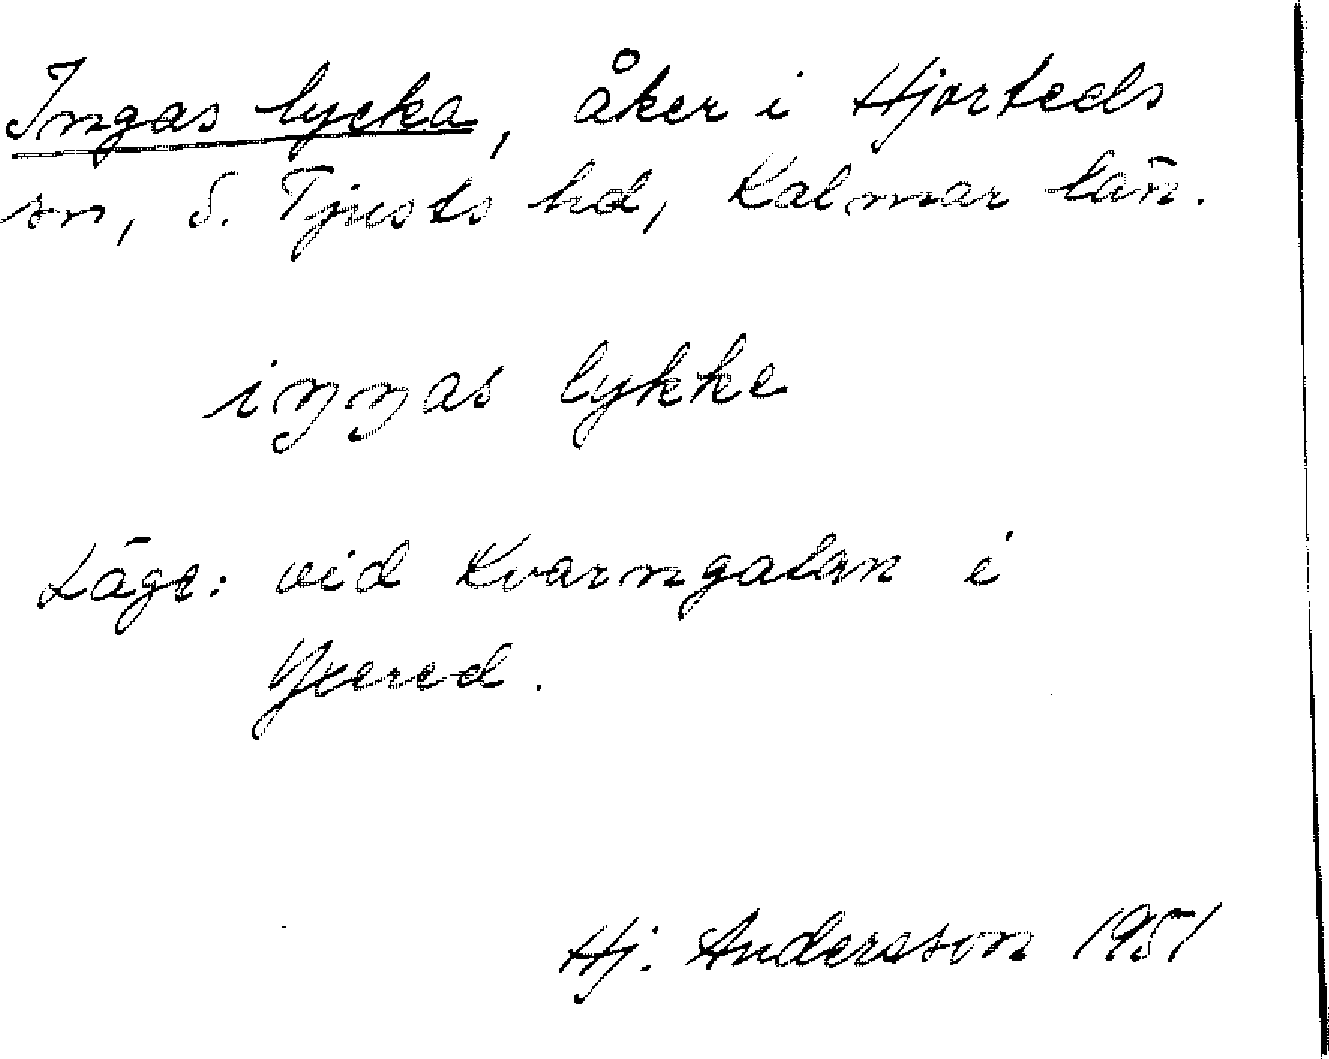 Ingas lycka, åker i Hjorteds
sn, S. Tjusts hd, Kalmar län.
iŋŋas lykke
Läge: vid Kvarngatan i
Yxered.
Hj. Andersson 1951